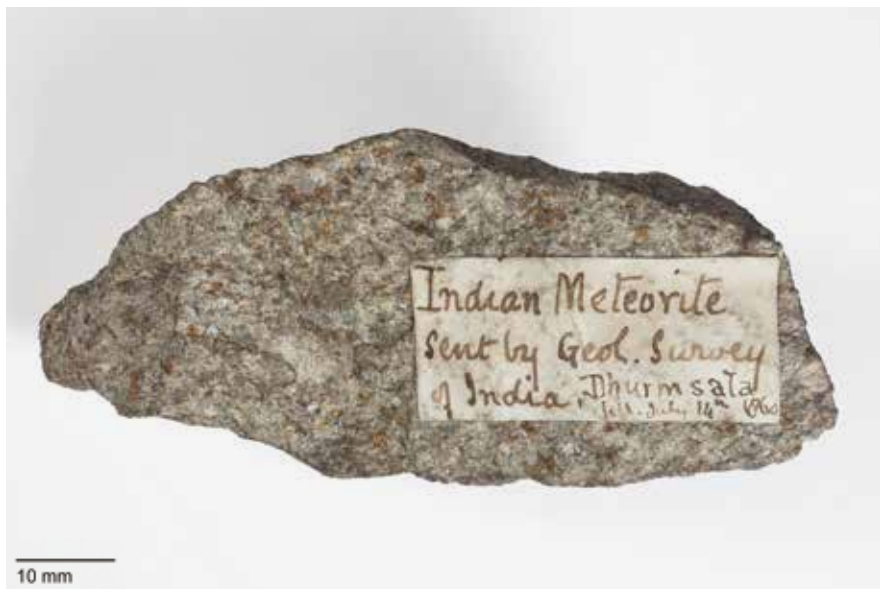 Indian Meteorite
Sent by Geol. Survey
of India, Dhurmsala
fell July 14th 1860
10 mm